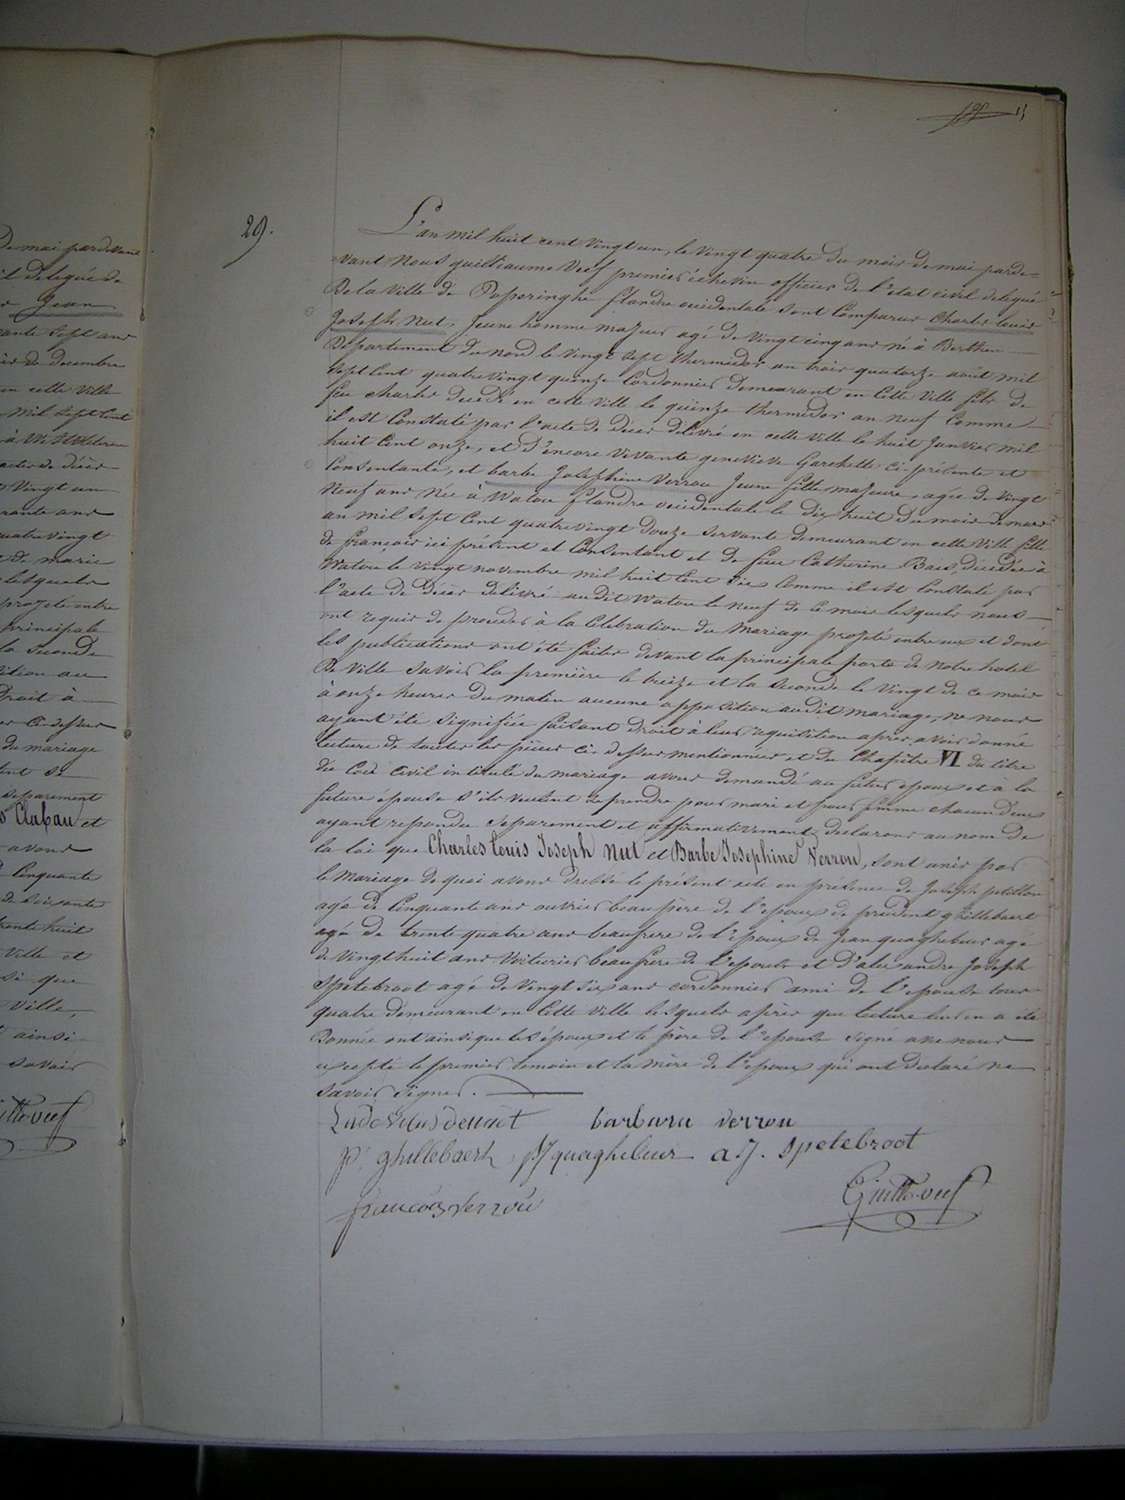 De mai pardevant
Jean
de decembre
en cette Ville
Mil Sept Cent
Vingt un
quatre vingt
de marie
lesquels
projeté entre
principale
la Seconde
Droit à
du mariage
separement
Clabau et
avons
Cinquante
trente huit
Ville et
Ville,
ainsi
savoir
29.
L'an Mil huit cent Vingt un, le Vingt quatre du mois de mai parde=
vant Nous guilliaume Veuf premier échevin officier de l'état civil delegué
De la Ville de Poperinghe flandre occidentale sont Comparus Charles louis
Joseph Nut, Jeune homme majeur agé de Vingt cinq ans né à Berthen
Departement du Nord le Vingt Sept thermidor an trois quatorze août mil
Sept Cent quatre vingt quinze Cordonnier demeurant en Cette Ville fils de
feu Charles decedé en cette Ville le quinze thermidor an neuf Comme
il est Constaté par l'acte de Décès délivré en cette Ville le huit Janvier mil
huit Cent onze, et d'encore vivante geneviéve Garchette ci présente et
Consentante, et barbe Josephine Verrou Jeune fille majeure, agée de Vingt
Neuf ans Née à Watou flandre occidentale le dix huit du mois de mars
an mil Sept Cent quatre vingt douze Servante demeurant en cette Ville fille
de françois ici présent et Consentant et de feue Catherine Baes, décédée à
Watou le Vingt novembre mil huit Cent dix Comme il est Constaté par
l'acte de Décès delivré audit Watou le Neuf de ce mois lesquels nous
ont requis de proceder à la Celebration du Mariage projeté entre eux et dont
les publications ont été faites devant la principale porte de notre hotel
De Ville Savoir la premiére le treize et la Seconde le Vingt de ce mois
à onze heures du matin aucune opposition audit mariage, ne nous
ayant été Signifiée faisant droit à leur requisition après avoir donné
lecture de toutes les pièces ci-dessus mentionnées et du Chapitre VI du titre
du Code Civil intitulé du mariage avons demandé au futur epoux et à la
future épouse S'ils veulent se prendre pour mari et pour femme chacun deux
ayant repondu Separement et affirmativement declarons au nom de
la loi que Charles Louis Joseph Nut et Barbe Josephine Verrou, sont unis par
le Mariage De quoi avons dressé le présent acte en présence de Joseph petillon
agé de Cinquante ans ouvrier beau père de l'epoux de prudent ghillebaert
agé de trente quatre ans beaufrere de l'époux de Jean quaghebeur agé
de Vingt huit ans Voiturier beaufrere de l'epouse et d'alexandre Joseph
Spetebroot agé de Vingt Six ans cordonnier ami de l'epouse tous
quatre demeurant en Cette Ville lesquels après que lecture leur en a été
Donnée ont ainsi que les époux et le père de l'epouse signé avec nous
excepté le premier temoin et la mère de l'epoux qui ont declaré ne
Savoir signer.
barbara verrou
p. ghillebaert J quaghebuer a J. Spetebroot
francois verrou
Guill. veuf